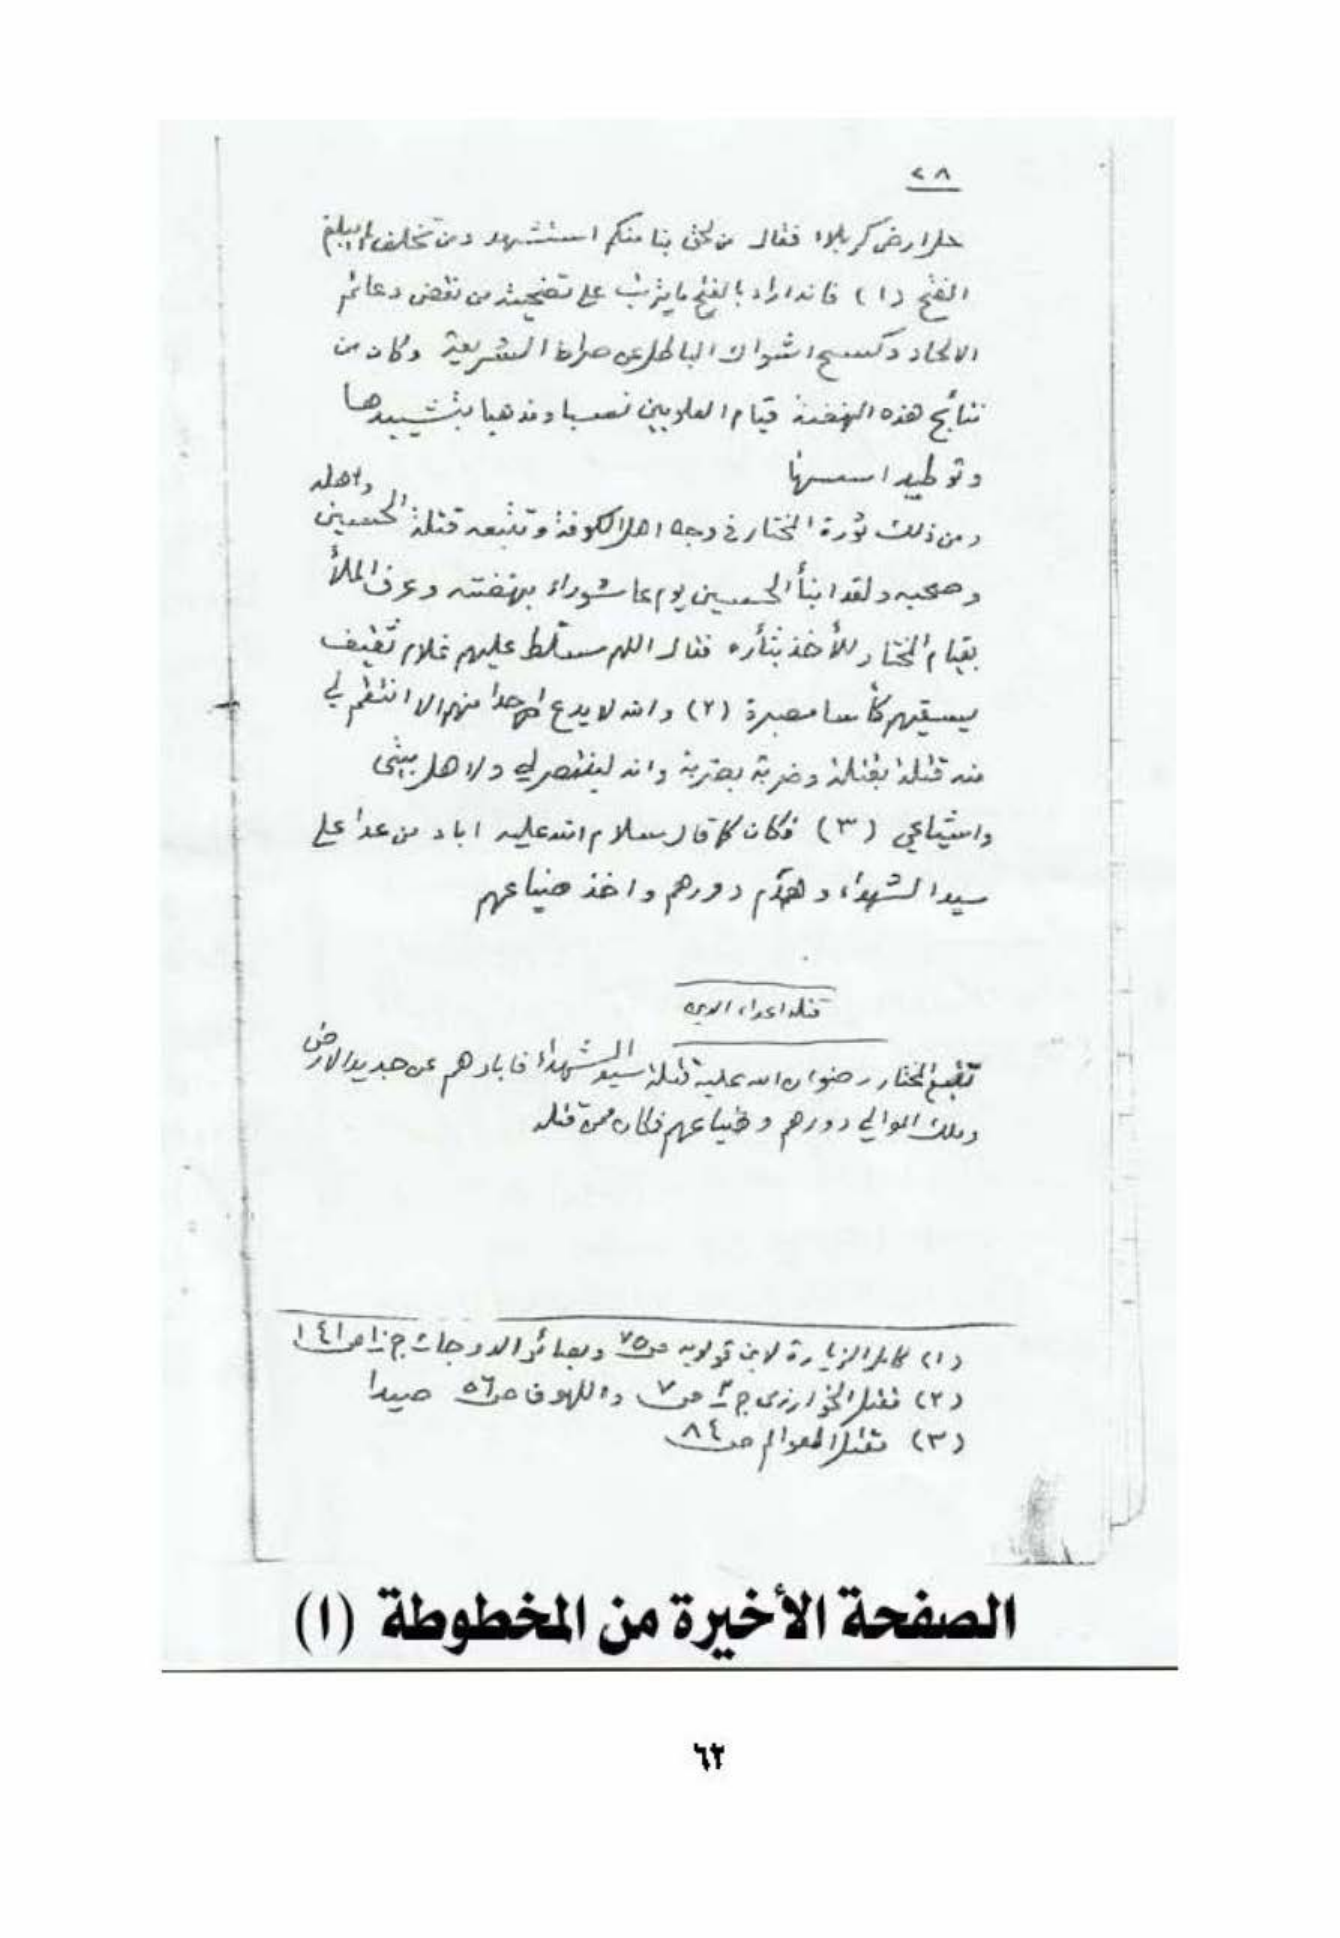 ٢٨
حل ارض كربلاء فقال من لحق بنا منكم استشهد ومن تخلف لم يبلغ
الفتح (١) فانه اراد بالفتح ما يترتب على تضحيته من نقض دعائم
الالحاد وكسح اشواك الباطل عن صراط الشريعة وكان من
نتائج هذه النهضة قيام العلويين نسبا ومذهبا بتشييدها
وتوطيد اسسها
ومن ذلك ثورة المختار في وجه اهل الكوفة وتتبعه قتلة الحسين واهله
وصحبه ولقد انبأ الحسين يوم عاشوراء بنهضته وعرف الملأ
بقيام المختار للأخذ بثأره فقال اللهم سلط عليهم غلام ثقيف
يسقيهم كأسا مصبرة (٢) والله لا يدع احدا منهم الا انتقم لي
منه قتلة بقتلة وضربة بضربة وانه لينتصر لي ولاهل بيتي
واشياعي (٣) فكان كما قال سلام الله عليه اباد من عدا على
سيد الشهداء وهدم دورهم واخذ ضياعهم
قتله اعداء الدين
تتبع المختار رضوان الله عليه قتلة سيد الشهداء فابادهم عن جديد الارض
وملك الموالي دورهم وضياعهم فكان ممن قتله
(١) كامل الزيارة لابن قولويه ص٧٥ وبصائر الدرجات ج١٠ ص١٤١
(٢) مقتل الخوارزمي ج٢ ص٧ واللهوف ص٥٦ صيدا
(٣) مقتل العوالم ص٨٤
الصفحة الأخيرة من المخطوطة (١)
٦٢